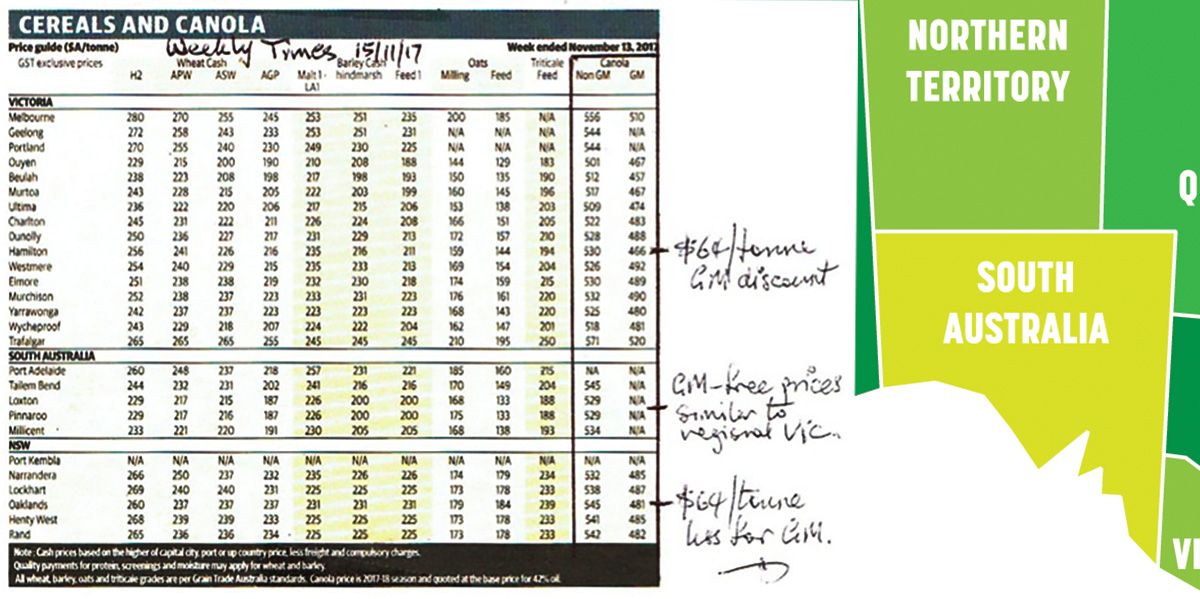 CEREALS AND CANOLA
Price guide ($A/tonne) Weekly Times 15/11/17 Week ended November 13, 2017
GST exclusive prices Wheat Cash Barley Cash Oats Triticale Canola
H2 APW ASW AGP Malt 1 - LA1 hindmarsh Feed 1 Milling Feed Feed Non GM GM
VICTORIA
Melbourne 280 270 255 245 253 251 235 200 185 N/A 556 510
Geelong 272 258 243 233 253 251 231 N/A N/A N/A 544 N/A
Portland 270 255 240 230 249 230 225 N/A N/A N/A 544 N/A
Ouyen 229 215 200 190 210 208 188 144 129 183 501 467
Beulah 238 223 208 198 217 198 193 150 135 190 512 457
Murtoa 243 228 215 205 222 203 199 160 145 196 517 467
Ultima 236 222 220 206 217 215 206 153 138 203 509 474
Charlton 245 231 222 211 226 224 208 166 151 205 522 483
Dunolly 250 236 227 217 231 229 213 172 157 210 528 488
Hamilton 256 241 226 216 235 216 211 159 144 194 530 466
Westmere 254 240 229 215 235 233 213 169 154 204 526 492
Elmore 251 238 238 219 232 230 218 174 159 215 530 489
Murchison 252 238 237 223 233 231 223 176 161 220 532 490
Yarrawonga 242 237 237 223 223 223 223 168 143 220 525 480
Wycheproof 243 229 218 207 224 222 204 162 147 201 518 481
Trafalgar 265 265 265 255 245 245 245 210 195 250 571 520
SOUTH AUSTRALIA
Port Adelaide 260 248 237 218 257 231 221 185 160 215 NA N/A
Tailem Bend 244 232 231 202 241 216 216 170 149 204 545 N/A
Loxton 229 217 215 187 226 200 200 168 133 188 529 N/A
Pinnaroo 229 217 216 187 226 200 200 175 133 188 529 N/A
Millicent 233 221 220 191 230 205 205 168 138 193 534 N/A
NSW
Port Kembla N/A N/A N/A N/A N/A N/A N/A N/A N/A N/A N/A N/A
Narrandera 266 250 237 232 235 226 226 174 179 234 532 485
Lockhart 269 240 240 231 225 225 225 173 178 233 538 487
Oaklands 260 237 237 237 231 231 231 179 184 239 545 481
Henty West 268 239 239 233 225 225 225 173 178 233 541 485
Rand 265 236 236 234 225 225 225 173 178 233 542 482
Note : Cash prices based on the higher of capital city, port or up country price, less freight and compulsory charges.
Quality payments for protein, screenings and moisture may apply for wheat and barley.
All wheat, barley, oats and triticale grades are per Grain Trade Australia standards. Canola price is 2017-18 season and quoted at the base price for 42% oil.
$64/tonne
GM discount
GM-free prices
similar to
regional Vic.
$64/tonne
less for GM.
NORTHERN
TERRITORY
Q
SOUTH
AUSTRALIA
VI